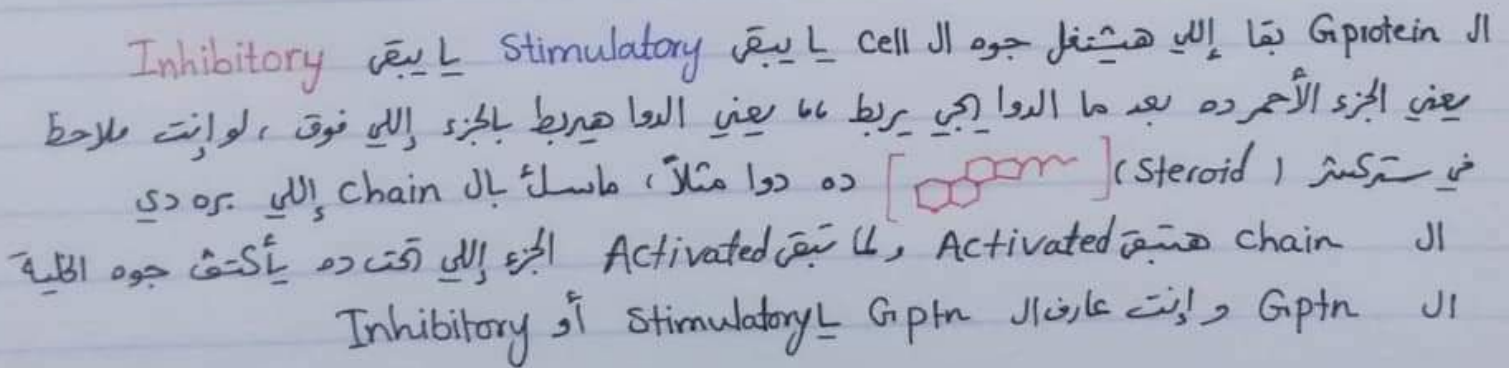 ال Gprotein بقا إللي هيشتغل جوه ال cell يا يبقى Stimulatory يا يبقى Inhibitory
يعني الجزء الأحمر ده بعد ما الدوا ييجي يربط ،، يعني الدوا هيربط بالجزء إللي فوق ، لو إنت ملاحظ
في ستركشر (Steroid) [ ] ده دوا مثلاً ، ماسك بال chain إللي بره دي
ال chain هتبقى Activated و لما تبقى Activated الجزء إللي تحت ده يأكتف جوه الخلية
ال Gptn و إنت عارف ال Gptn يا Stimulatory أو Inhibitory